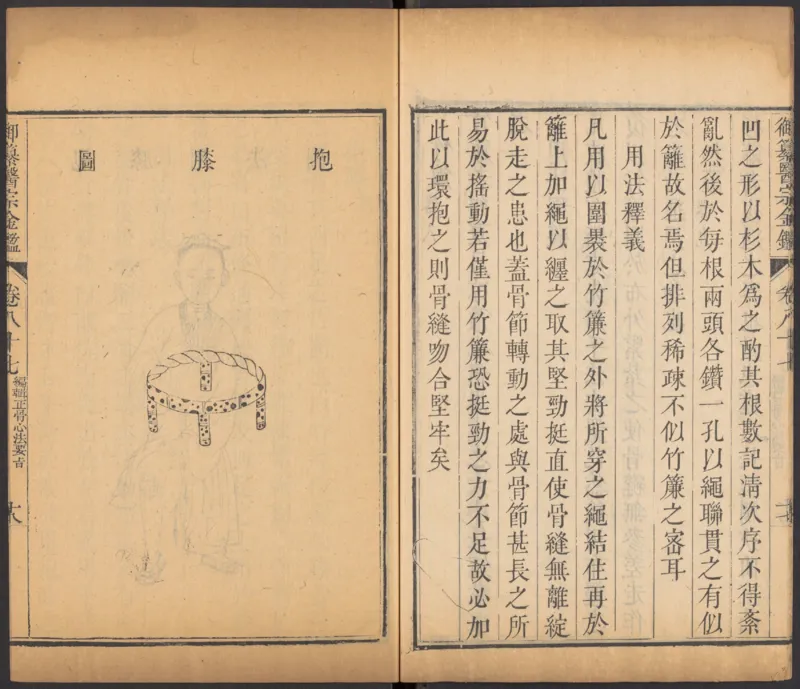 凹之形以杉木爲之酌其根數記清次序不得紊
亂然後於每根兩頭各鑽一孔以繩聯貫之有似
於籬故名焉但排列稀疎不似竹簾之密耳
用法釋義
凡用以圍裹於竹簾之外將所穿之繩結住再於
籬上加繩以纏之取其堅勁挺直使骨縫無離綻
脫走之患也蓋骨節轉動之處與骨節甚長之所
易於搖動若僅用竹簾恐挺勁之力不足故必加
此以環抱之則骨縫吻合堅牢矣
抱膝圖
御纂醫宗金鑑
卷八十七
編輯正骨心法要旨